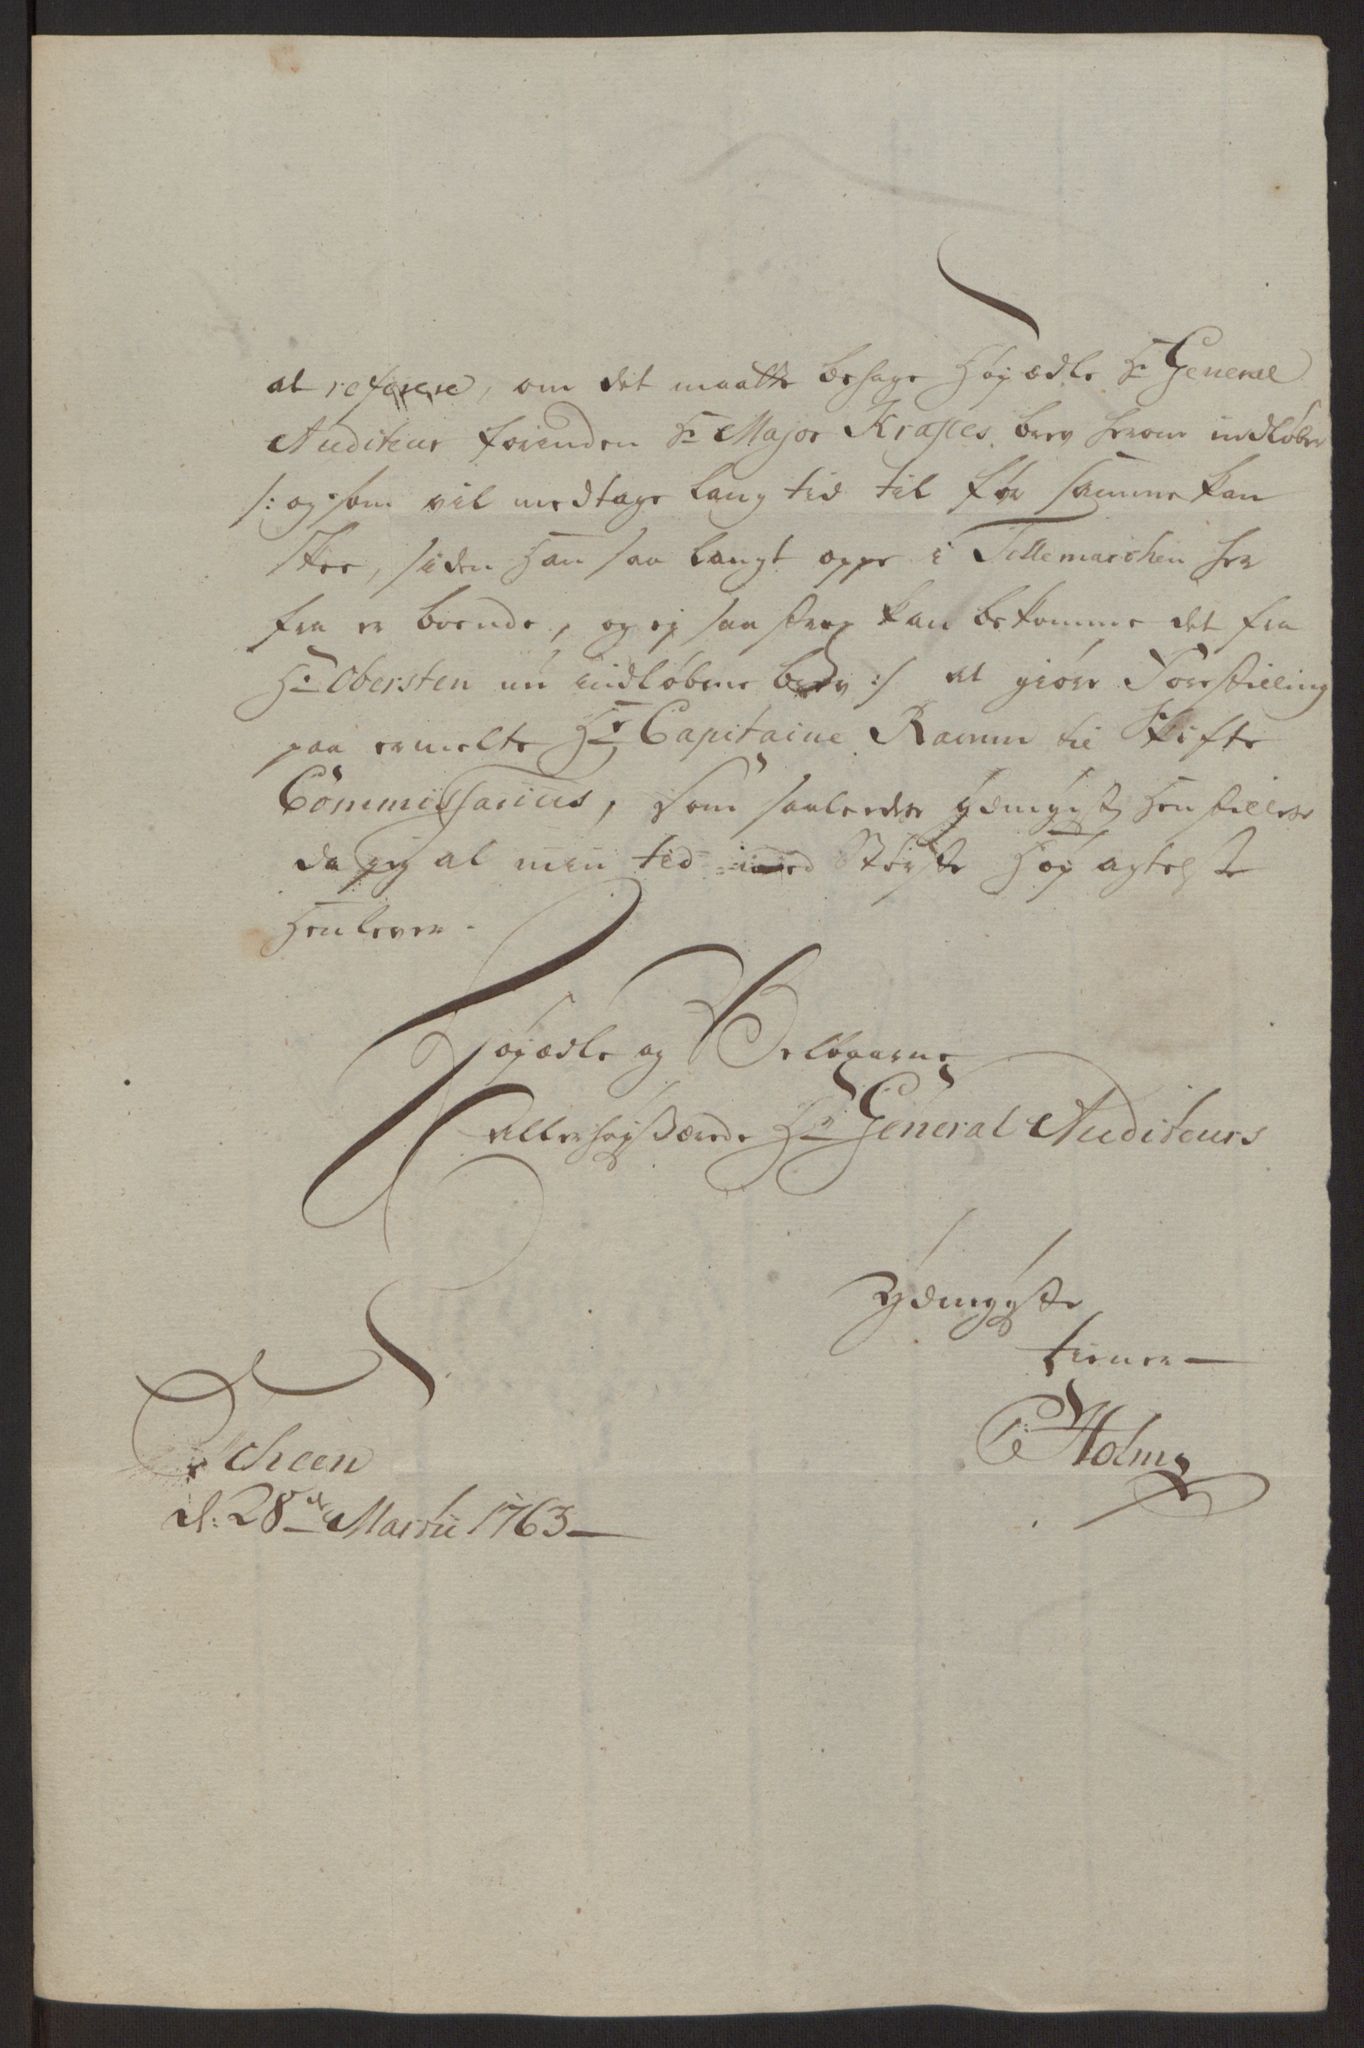 at referere, om det maatte behage Høyædle Hr General
Auditeur forinden Hr Major Krafts brev herom indløber
/: og som vil medtage lang tid til før samme kan
skee, siden Han saa langt oppe i Tellemarchen her
fra er boende, og ej saa strax kan bekomme det fra
Hr Obersten nu indløbne brev :/ at giøre Forestilling
paa ermelte Hr Capitaine Ramm til Skifte
Commissarius, som saaledes ydmygst Henstilles
da jeg al min tid med største Høy agtelse
Henlever.
Høyædle og Velbaarne
allerhøystærede Hr General Auditeurs
ydmygste
tiener
Holm
Scheen
d: 28de Martii 1763